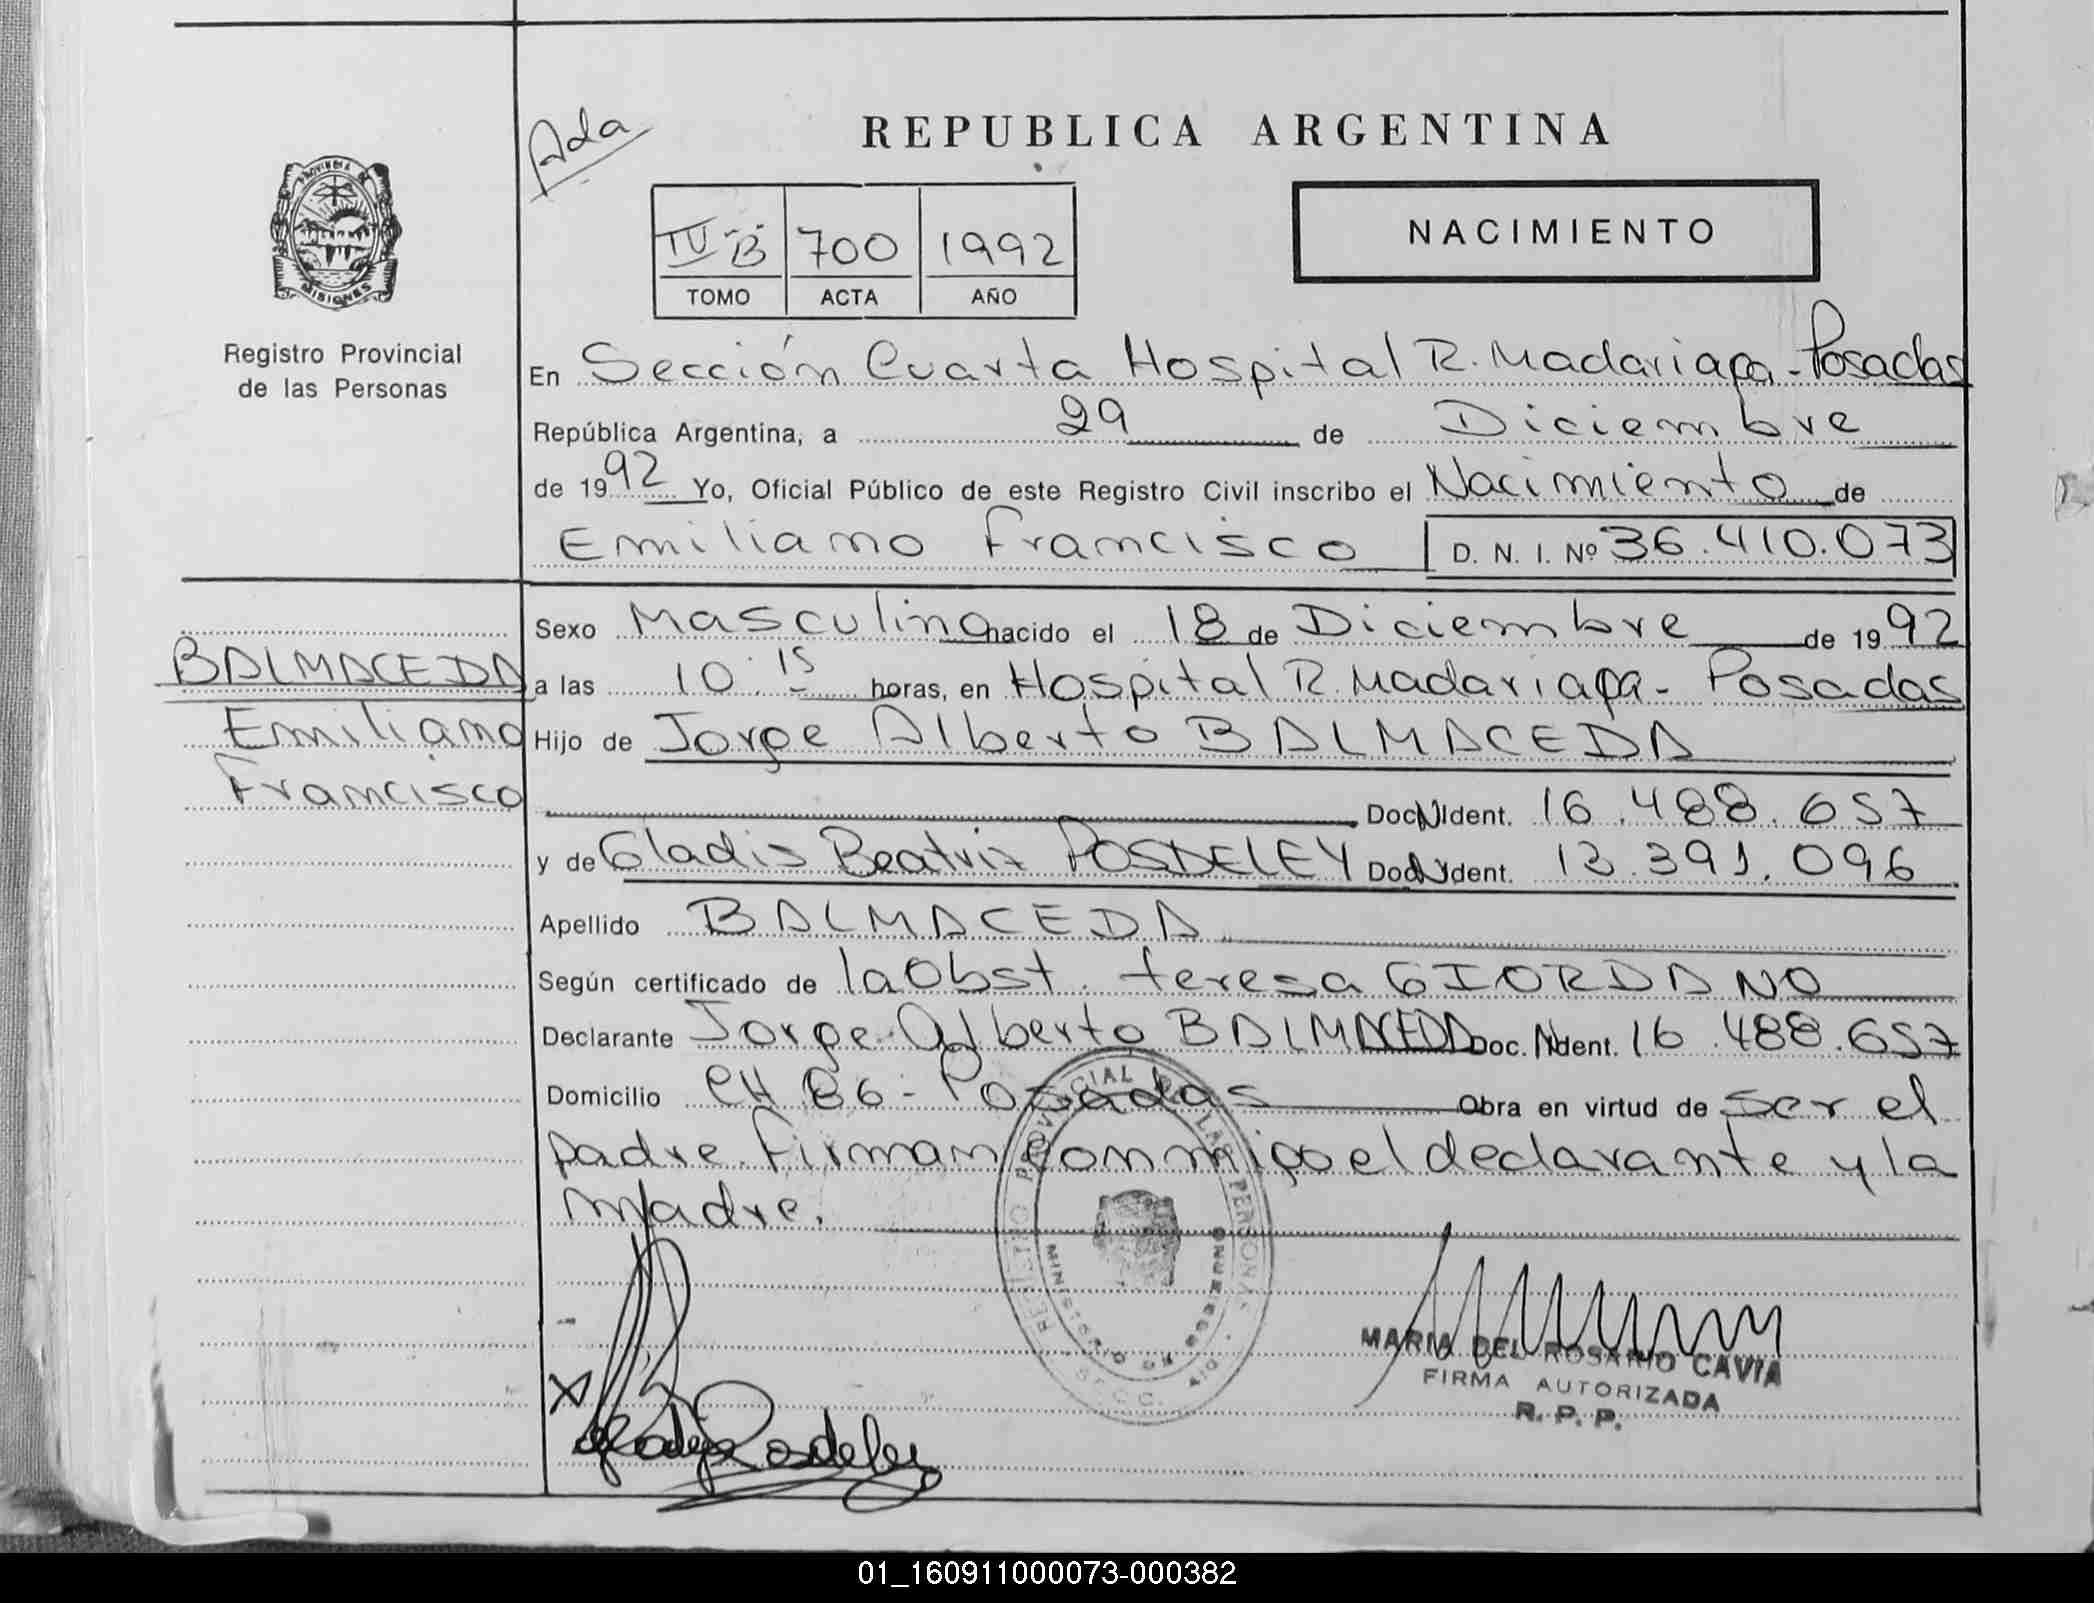 Ada
REPUBLICA ARGENTINA
IV-B 700 1992
TOMO ACTA AÑO
NACIMIENTO
PROVINCIA DE
MISIONES
Registro Provincial
de las Personas
En Sección Cuarta Hospital R. Madariaga - Posadas
República Argentina, a 29 de Diciembre
de 1992 Yo, Oficial Público de este Registro Civil inscribo el Nacimiento de
Emiliano Francisco D. N. I. Nº 36.410.073
Sexo Masculino nacido el 18 de Diciembre de 1992
BALMACEDA
a las 10:15 horas, en Hospital R. Madariaga - Posadas
Emiliano
Hijo de Jorge Alberto BALMACEDA
Francisco
Doc. N Ident. 16.488.657
y de Gladis Beatriz POSDELEY Doc. N Ident. 13.391.096
Apellido BALMACEDA
Según certificado de la Obst. teresa GIORDANO
Declarante Jorge Alberto BALMACEDA Doc. N Ident. 16.488.657
Domicilio CH 86 - Posadas Obra en virtud de ser el
padre. Firman conmigo el declarante y la
madre.
REGISTRO PROVINCIAL DE LAS PERSONAS
MINISTERIO DE GOBIERNO
MARIA DEL ROSARIO CAVIA
FIRMA AUTORIZADA
R. P. P.
X
01_160911000073-000382